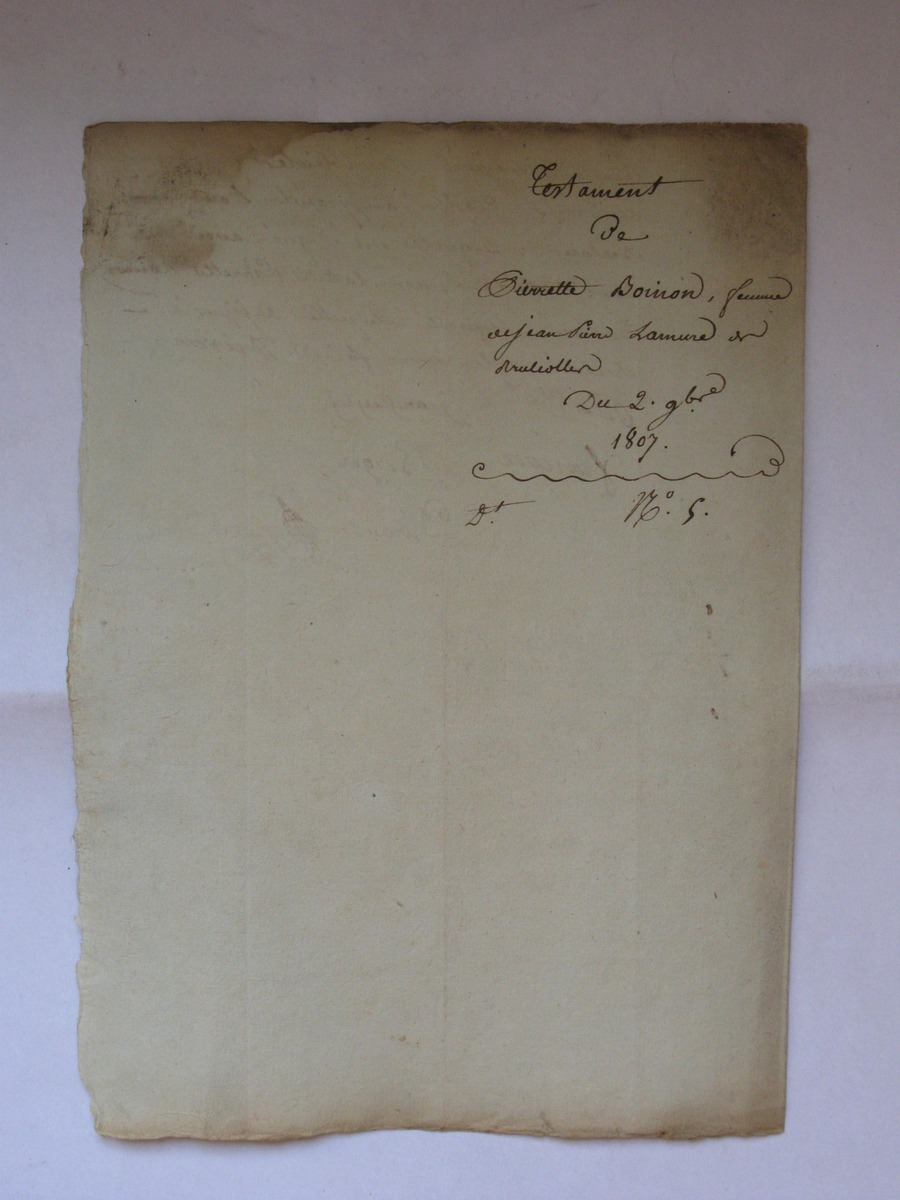 Testament
De
Pierrette Boinon, femme
de jean Pierre Lamure de
Bruliolles
Du 2. 9bre
1807.
Dt. N.o 5.